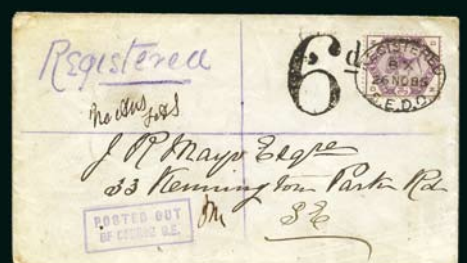 Registered
6d
REGISTERED
BX
26 NO 85
S.E.D.O.
No Ans
J R Mayo Esqre
33 Kennington Park Rd
S E
POSTED OUT
OF COURSE S.E.